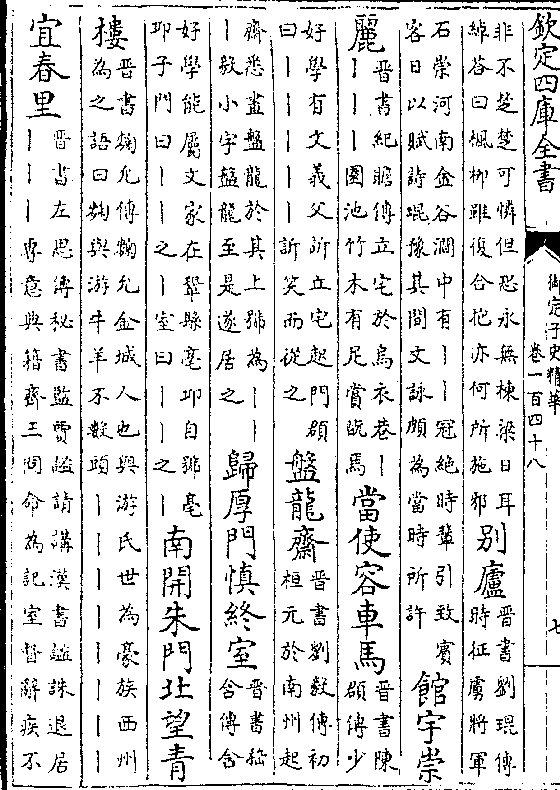 欽定四庫全書
御定子史精華
卷一百四十八
七
非不楚楚可憐但恐永無棟梁日耳
綽答曰楓柳雖復合抱亦何所施邪
別廬
晉書劉琨傳
時征虜將軍
石崇河南金谷澗中有丨丨冠絕時輩引致賓
客日以賦詩琨豫其間文詠頗為當時所許
館宇崇
麗
晉書紀瞻傳立宅於烏衣巷丨
丨丨丨園池竹木有足賞翫焉
當使容車馬
晉書陳
頵傳少
好學有文義父訢立宅起門頵
曰丨丨丨丨丨訢笑而從之
盤龍齋
晉書劉毅傳初
桓元於南州起
齋悉畫盤龍於其上號為丨丨
丨毅小字盤龍至是遂居之
歸厚門慎終室
晉書嵇
含傳含
好學能屬文家在鞏縣亳邱自號亳
邱子門曰丨丨之丨室曰丨丨之丨
南開朱門北望青
樓
晉書麴允傳麴允金城人也與游氏世為豪族西州
為之語曰麴與游牛羊不數頭丨丨丨丨丨丨丨丨
宜春里
晉書左思傳秘書監賈謐請講漢書謐誅退居
丨丨丨專意典籍齊王冏命為記室督辭疾不